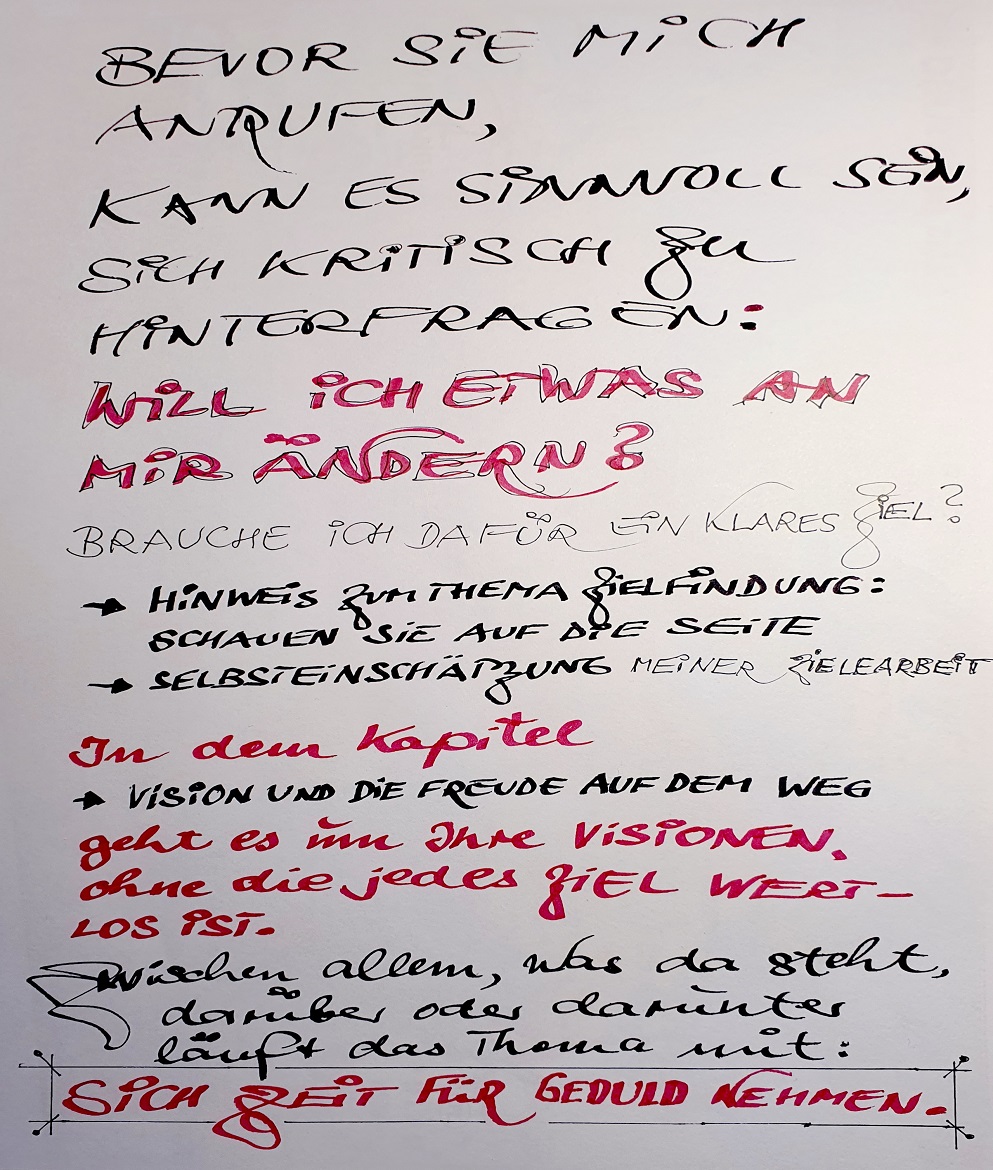 BEVOR SIE MICH
ANRUFEN,
KANN ES SINNVOLL SEIN,
SICH KRITISCH ZU
HINTERFRAGEN:
WILL ICH ETWAS AN
MIR ÄNDERN?
BRAUCHE ICH DAFÜR EIN KLARES ZIEL?
→ HINWEIS ZUM THEMA ZIELFINDUNG:
SCHAUEN SIE AUF DIE SEITE
→ SELBSTEINSCHÄTZUNG MEINER ZIELEARBEIT
In dem Kapitel
→ VISION UND DIE FREUDE AUF DEM WEG
geht es um Ihre VISIONEN,
ohne die jedes ZIEL WERT-
LOS IST.
Zwischen allem, was da steht,
darüber oder darunter
läuft das Thema mit:
SICH ZEIT FÜR GEDULD NEHMEN.